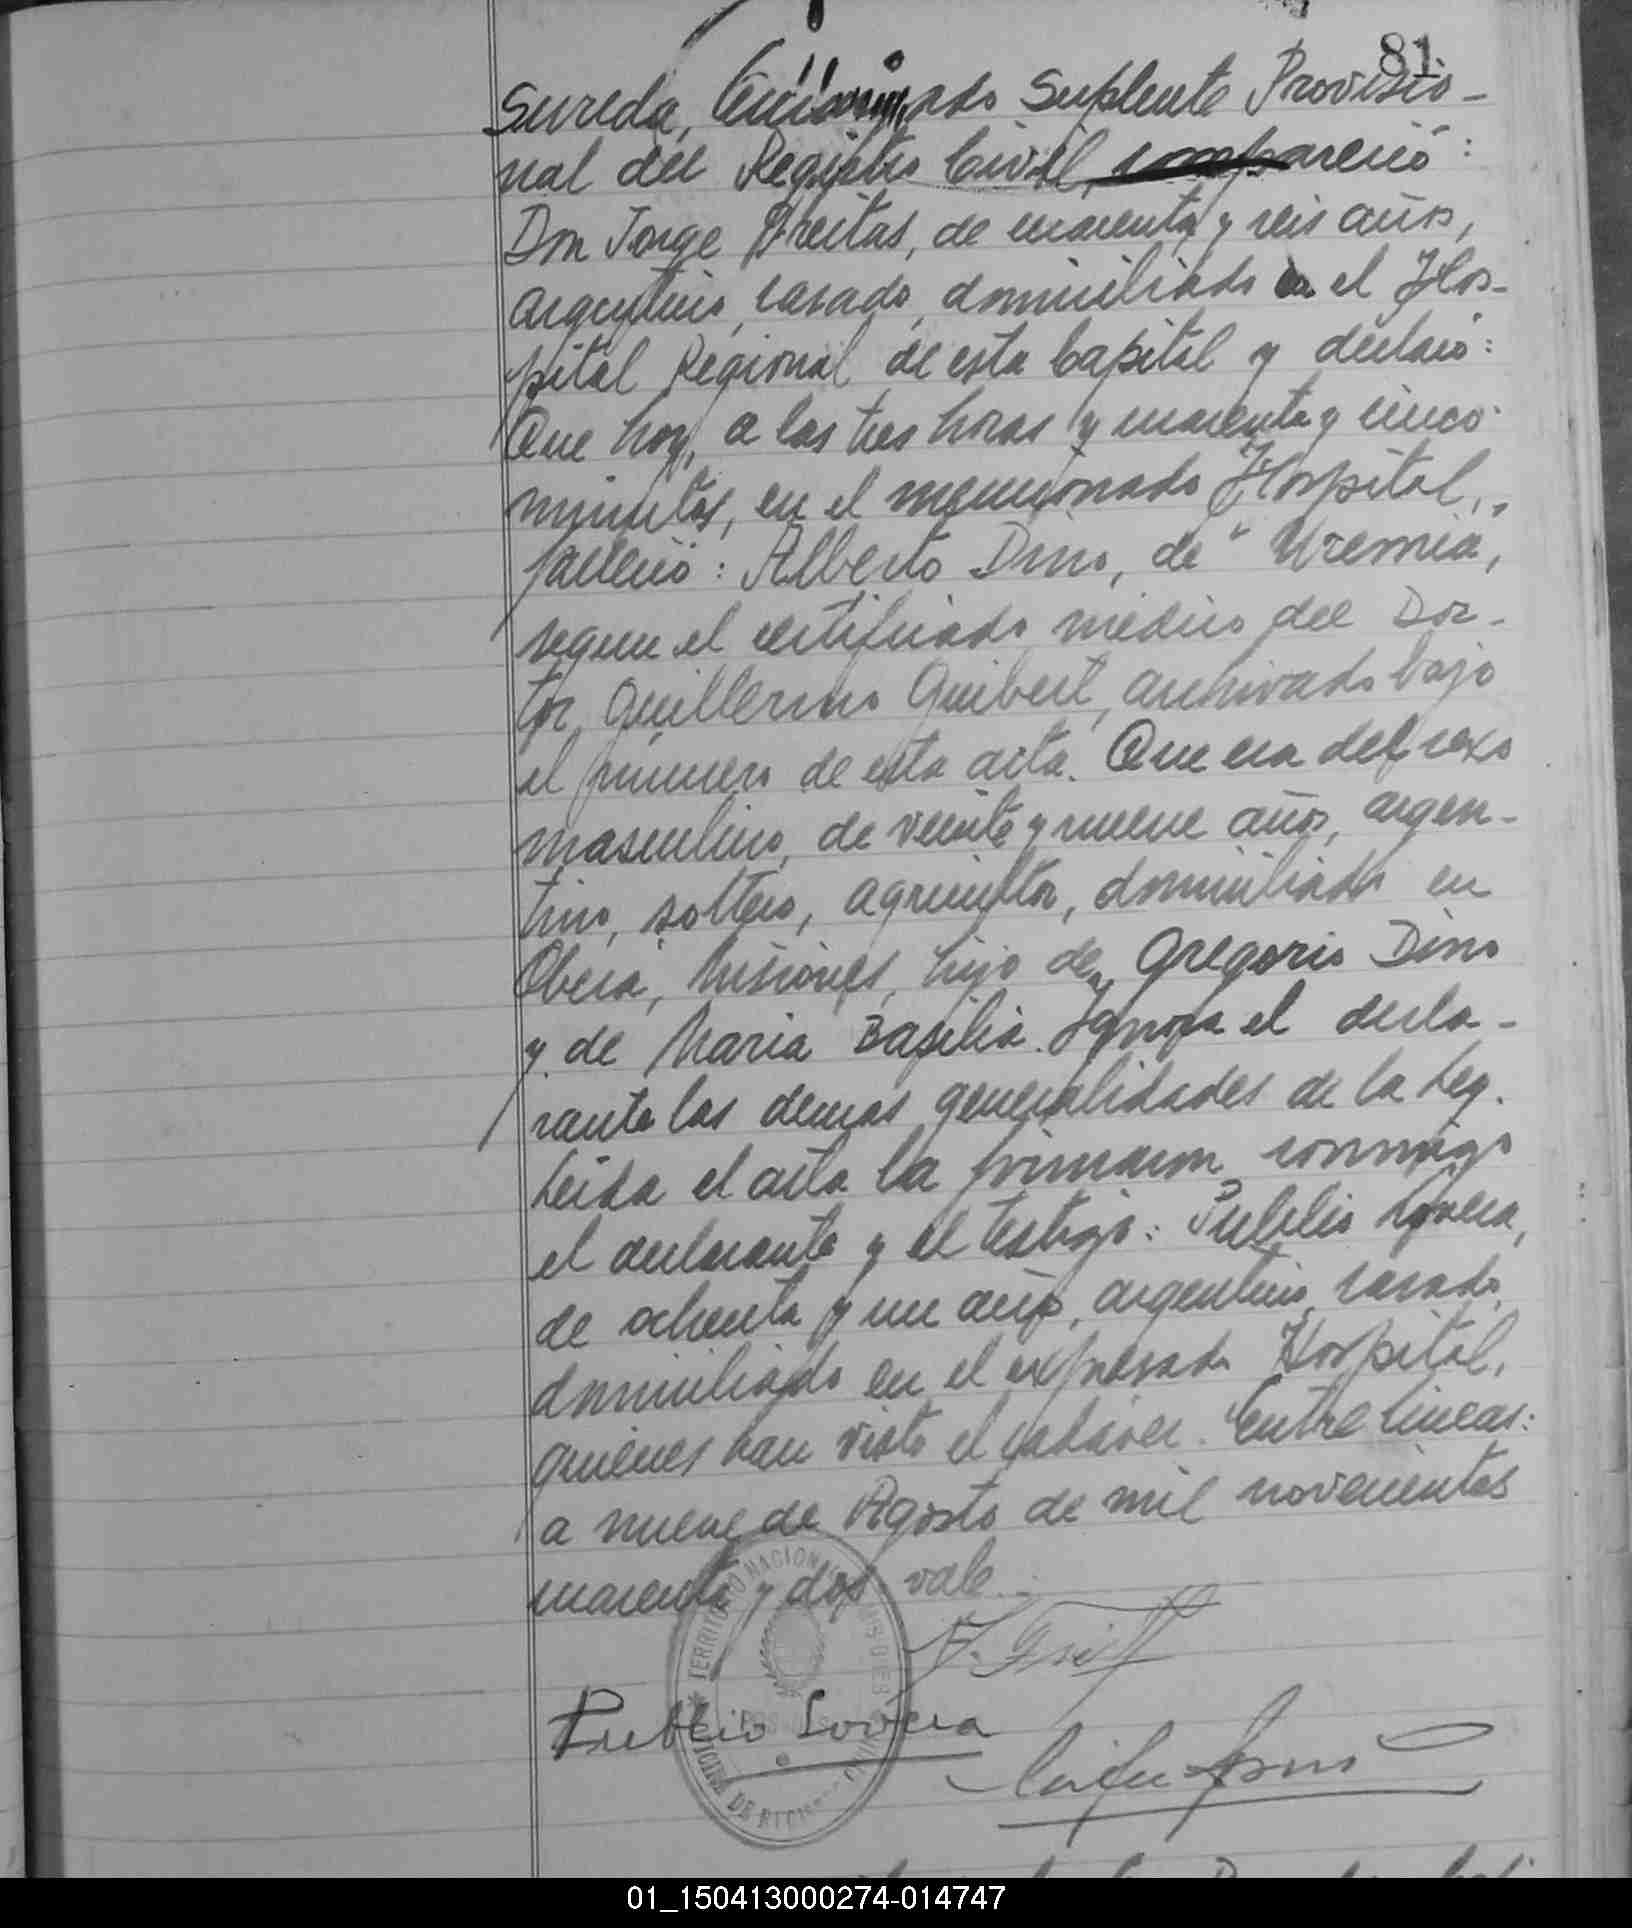 81
Sureda, Encargado Suplente Provisio-
nal del Registro Civil, compareció:
Don Jorge Freitas, de cuarenta y seis años,
argentino, casado, domiciliado en el Hos-
pital Regional de esta Capital y declaró:
Que hoy, a las tres horas y cuarenta y cinco
minutos, en el mencionado Hospital,
falleció: Alberto Dino, de "Uremia",
segun el certificado médico del Doc-
tor Guillermo Guibert, archivado bajo
el número de esta acta. Que era del sexo
masculino, de veinte y nueve años, argen-
tino, soltero, agricultor, domiciliado en
Oberá, Misiones, hijo de Gregorio Dino
y de Maria Basilia. Ignora el decla-
rante las demas generalidades de la Ley.
Leida el acta la firmaron conmigo
el declarante y el testigo: Publio Lovera,
de ochenta y un años, argentino, casado,
domiciliado en el expresado Hospital,
quienes han visto el cadáver. Entre lineas:
a nueve de Agosto de mil novecientos
cuarenta y dos vale.
TERRITORIO NACIONAL DE MISIONES
Publio Lovera
01_150413000274-014747